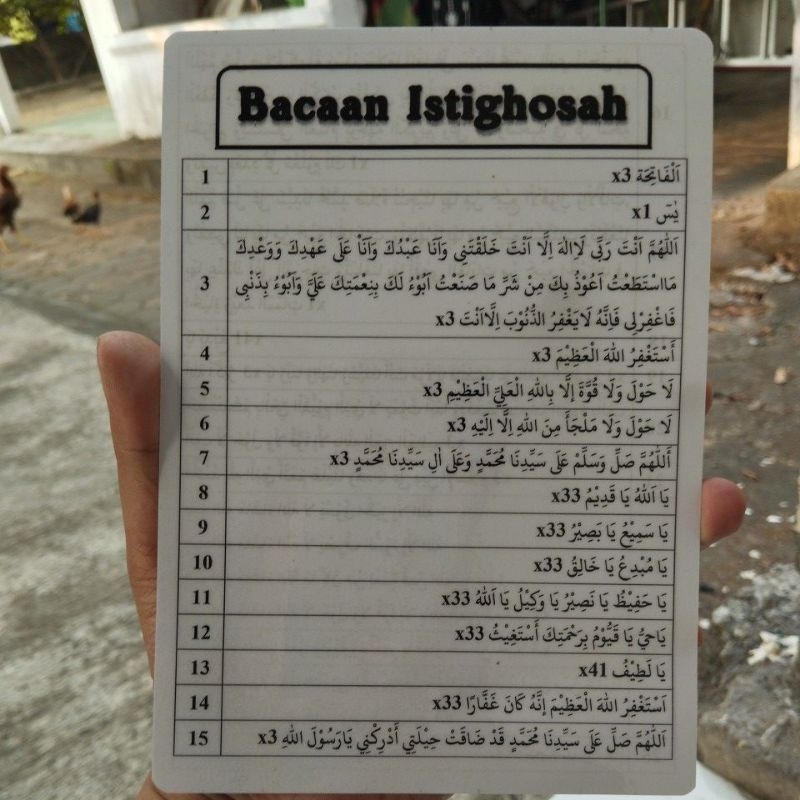 Bacaan Istighosah
1 اَلْفَاتِحَة x3
2 يٰسٓ x1
اَللّٰهُمَّ اَنْتَ رَبِّى لَاإِلٰهَ اِلَّا اَنْتَ خَلَقْتَنِى وَاَنَا عَبْدُكَ وَاَنَاْ عَلَى عَهْدِكَ وَوَعْدِكَ
3 مَااسْتَطَعْتُ اَعُوْذُ بِكَ مِنْ شَرِّ مَا صَنَعْتُ اَبُوْءُ لَكَ بِنِعْمَتِكَ عَلَيَّ وَاَبُوْءُ بِذَنْبِى
فَاغْفِرْلِى فَاِنَّهُ لَايَغْفِرُ الذُّنُوْبَ اِلَّااَنْتَ x3
4 أَسْتَغْفِرُ اللهَ الْعَظِيْمَ x3
5 لَا حَوْلَ وَلَا قُوَّةَ إِلَّا بِاللهِ الْعَلِيِّ الْعَظِيْمِ x3
6 لَا حَوْلَ وَلَا مَلْجَأَ مِنَ اللهِ اِلَّا اِلَيْهِ x3
7 أَللّٰهُمَّ صَلِّ وَسَلِّمْ عَلَى سَيِّدِنَا مُحَمَّدٍ وَعَلَى اٰلِ سَيِّدِنَا مُحَمَّدٍ x3
8 يَا اَللهُ يَا قَدِيْمُ x33
9 يَا سَمِيْعُ يَا بَصِيْرُ x33
10 يَا مُبْدِعُ يَا خَالِقُ x33
11 يَا حَفِيْظُ يَا نَصِيْرُ يَا وَكِيْلُ يَا اَللهُ x33
12 يَاحَيُّ يَا قَيُّوْمُ بِرَحْمَتِكَ أَسْتَغِيْثُ x33
13 يَا لَطِيْفُ x41
14 اَسْتَغْفِرُ اللهَ الْعَظِيْمَ إِنَّهُ كَانَ غَفَّارًا x33
15 اَللّٰهُمَّ صَلِّ عَلَى سَيِّدِنَا مُحَمَّدٍ قَدْ ضَاقَتْ حِيْلَتِي أَدْرِكْنِي يَارَسُوْلَ اللهِ x3